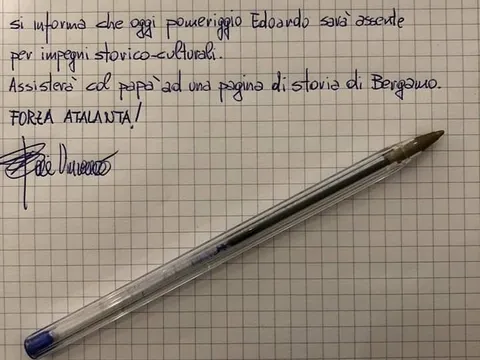 si informa che oggi pomeriggio Edoardo sarà assente
per impegni storico-culturali.
Assisterà col papà ad una pagina di storia di Bergamo.
FORZA ATALANTA!